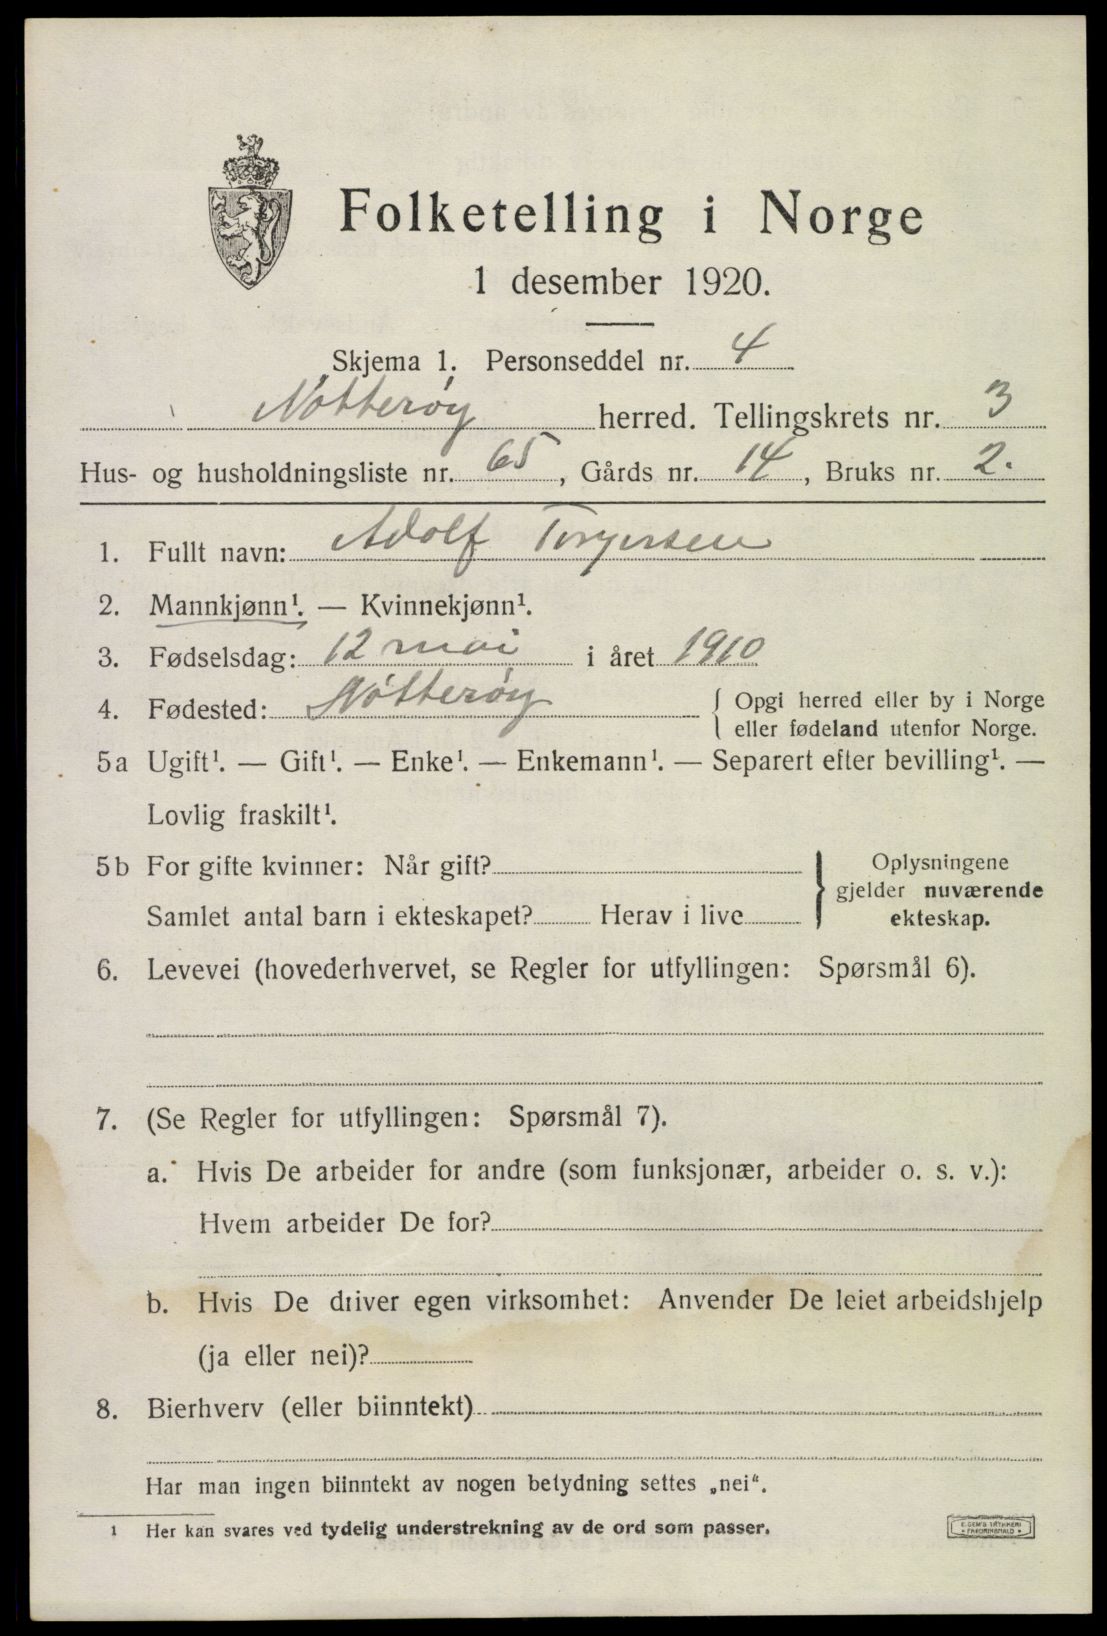 Folketelling i Norge
1 desember 1920.
Skjema 1. Personseddel nr. 4
Nøtterøy herred. Tellingskrets nr. 3
Hus- og husholdningsliste nr. 65, Gårds nr. 14, Bruks nr. 2.
1. Fullt navn: Adolf Torgersen
2. Mannkjønn¹. — Kvinnekjønn¹.
3. Fødselsdag: 12 mai i året 1910
4. Fødested: Nøtterøy { Opgi herred eller by i Norge
eller fødeland utenfor Norge.
5a Ugift¹. — Gift¹. — Enke¹. — Enkemann¹. — Separert efter bevilling¹. —
Lovlig fraskilt¹.
5b For gifte kvinner: Når gift? } Oplysningene
gjelder nuværende
Samlet antal barn i ekteskapet? Herav i live ekteskap.
6. Levevei (hovederhvervet, se Regler for utfyllingen: Spørsmål 6).
7. (Se Regler for utfyllingen: Spørsmål 7).
a. Hvis De arbeider for andre (som funksjonær, arbeider o. s. v.):
Hvem arbeider De for?
b. Hvis De driver egen virksomhet: Anvender De leiet arbeidshjelp
(ja eller nei)?
8. Bierhverv (eller biinntekt)
Har man ingen biinntekt av nogen betydning settes „nei“.
¹ Her kan svares ved tydelig understrekning av de ord som passer.